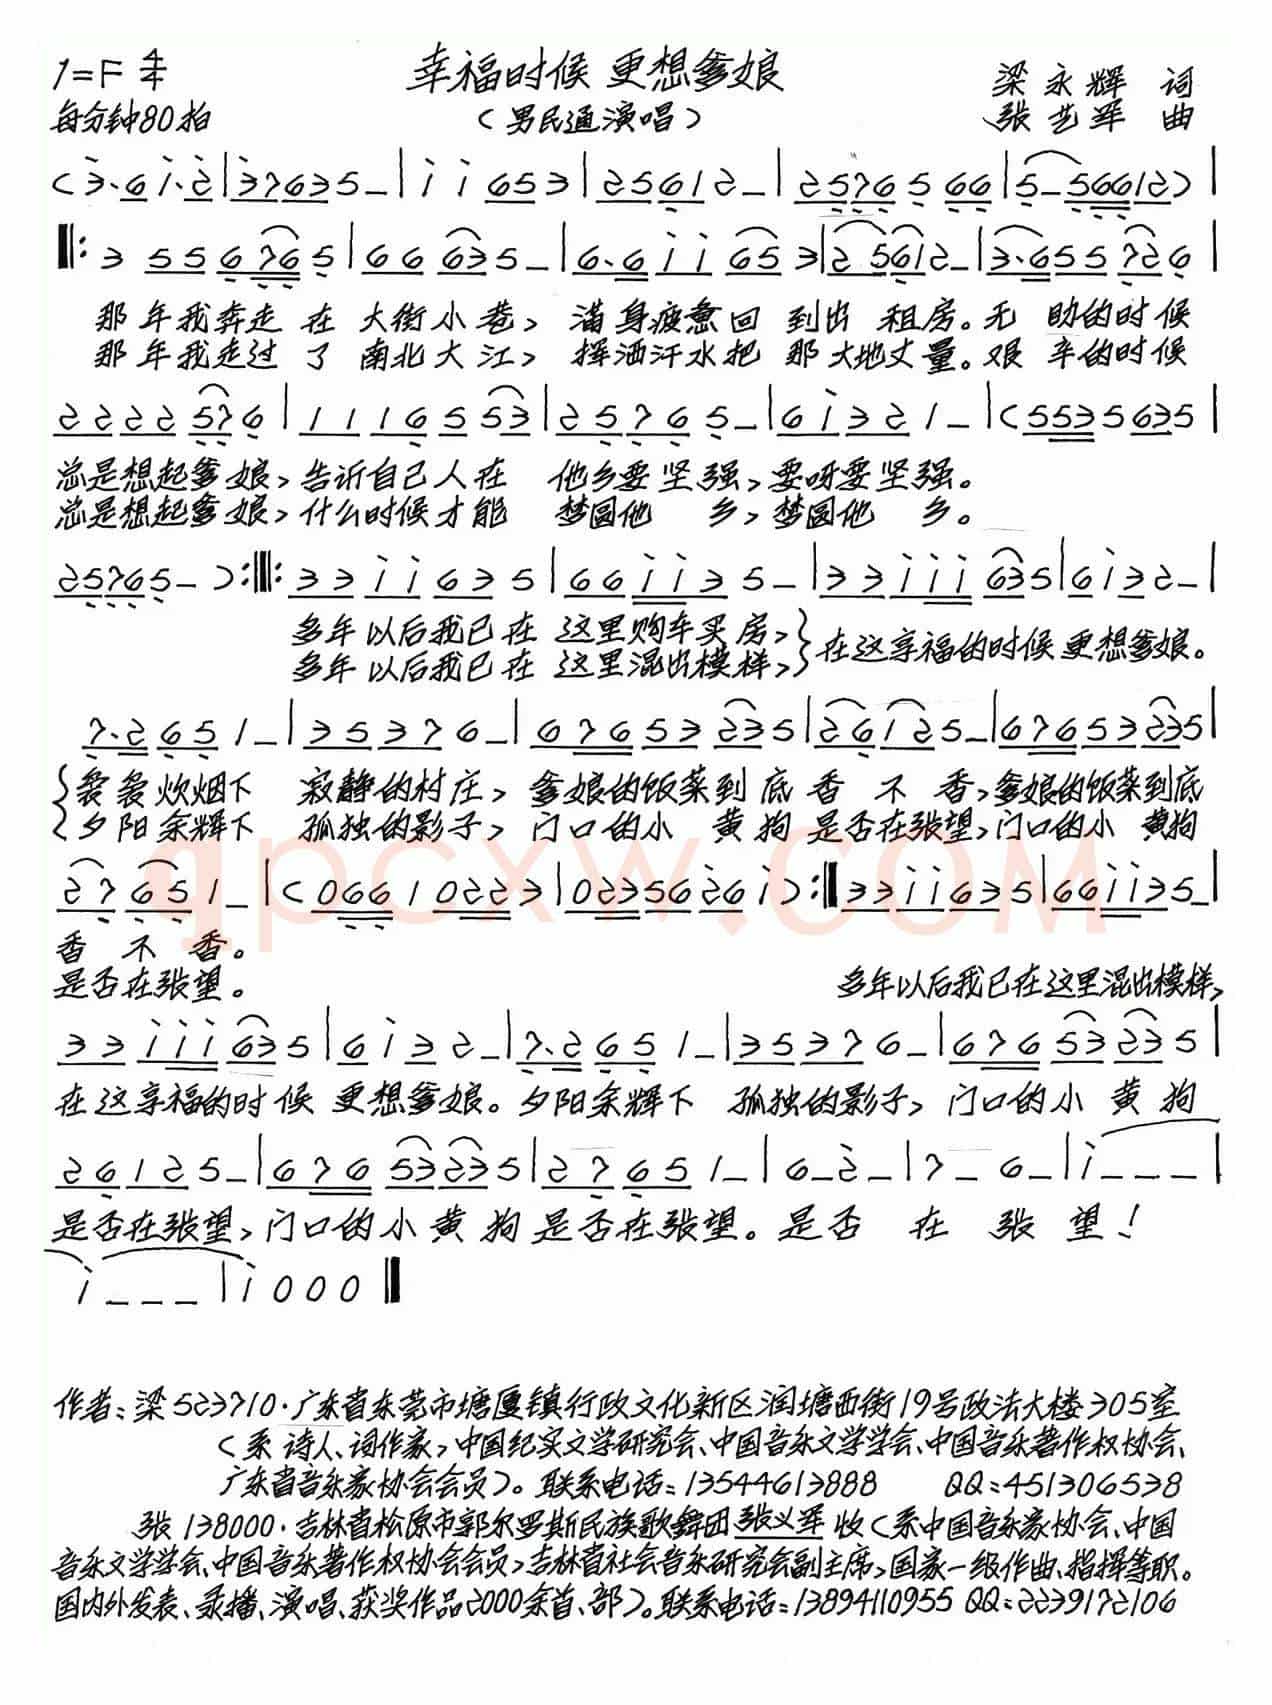 1=F 4/4
幸福时候 更想爹娘
梁永辉 词
每分钟80拍
(男民通演唱)
张艺军 曲
(3·6 1·2|37635_|1 1 653|25612_|2576566|5_56612)|
‖:3 556765|66635_|6·611653|25612_|3·6555726|
那年我奔走在大街小巷,满身疲惫回到出租房。无助的时候
那年我走过了南北大江,挥洒汗水把那大地丈量。艰辛的时候
2222576|1116553|25765_|61321_|(5535635|
总是想起爹娘,告诉自己人在他乡要坚强,要呀要坚强。
总是想起爹娘,什么时候才能梦圆他乡,梦圆他乡。
25765_):‖:3311635|661135_|33111635|6132_|
多年以后我已在这里购车买房,}在这享福的时候更想爹娘。
多年以后我已在这里混出模样,
7·2651_|35376_|67653235|26125_|67653235|
{袅袅炊烟下寂静的村庄,爹娘的饭菜到底香不香,爹娘的饭菜到底
夕阳余辉下孤独的影子,门口的小黄狗是否在张望,门口的小黄狗
27651_|(06610223|02356261):‖3311635|661135_|
香不香。
是否在张望。
多年以后我已在这里混出模样,
33111635|6132_|7·2651_|35376_|67653235|
在这享福的时候更想爹娘。夕阳余辉下孤独的影子,门口的小黄狗
26125_|67653235|27651_|6_2_|7_6_|1___|
是否在张望,门口的小黄狗是否在张望。是否在张望!
1___|1000‖
作者:梁523710·广东省东莞市塘厦镇行政文化新区润塘西街19号政法大楼305室
(系诗人、词作家,中国纪实文学研究会、中国音乐文学学会、中国音乐著作权协会、
广东省音乐家协会会员)。联系电话:13544613888 QQ:451306538
张138000·吉林省松原市郭尔罗斯民族歌舞团张义军收(系中国音乐家协会、中国
音乐文学学会、中国音乐著作权协会会员,吉林省社会音乐研究会副主席,国家一级作曲、指挥等职。
国内外发表、录播、演唱、获奖作品2000余首、部)。联系电话:13894110955 QQ:2239172106
qpcxw.com